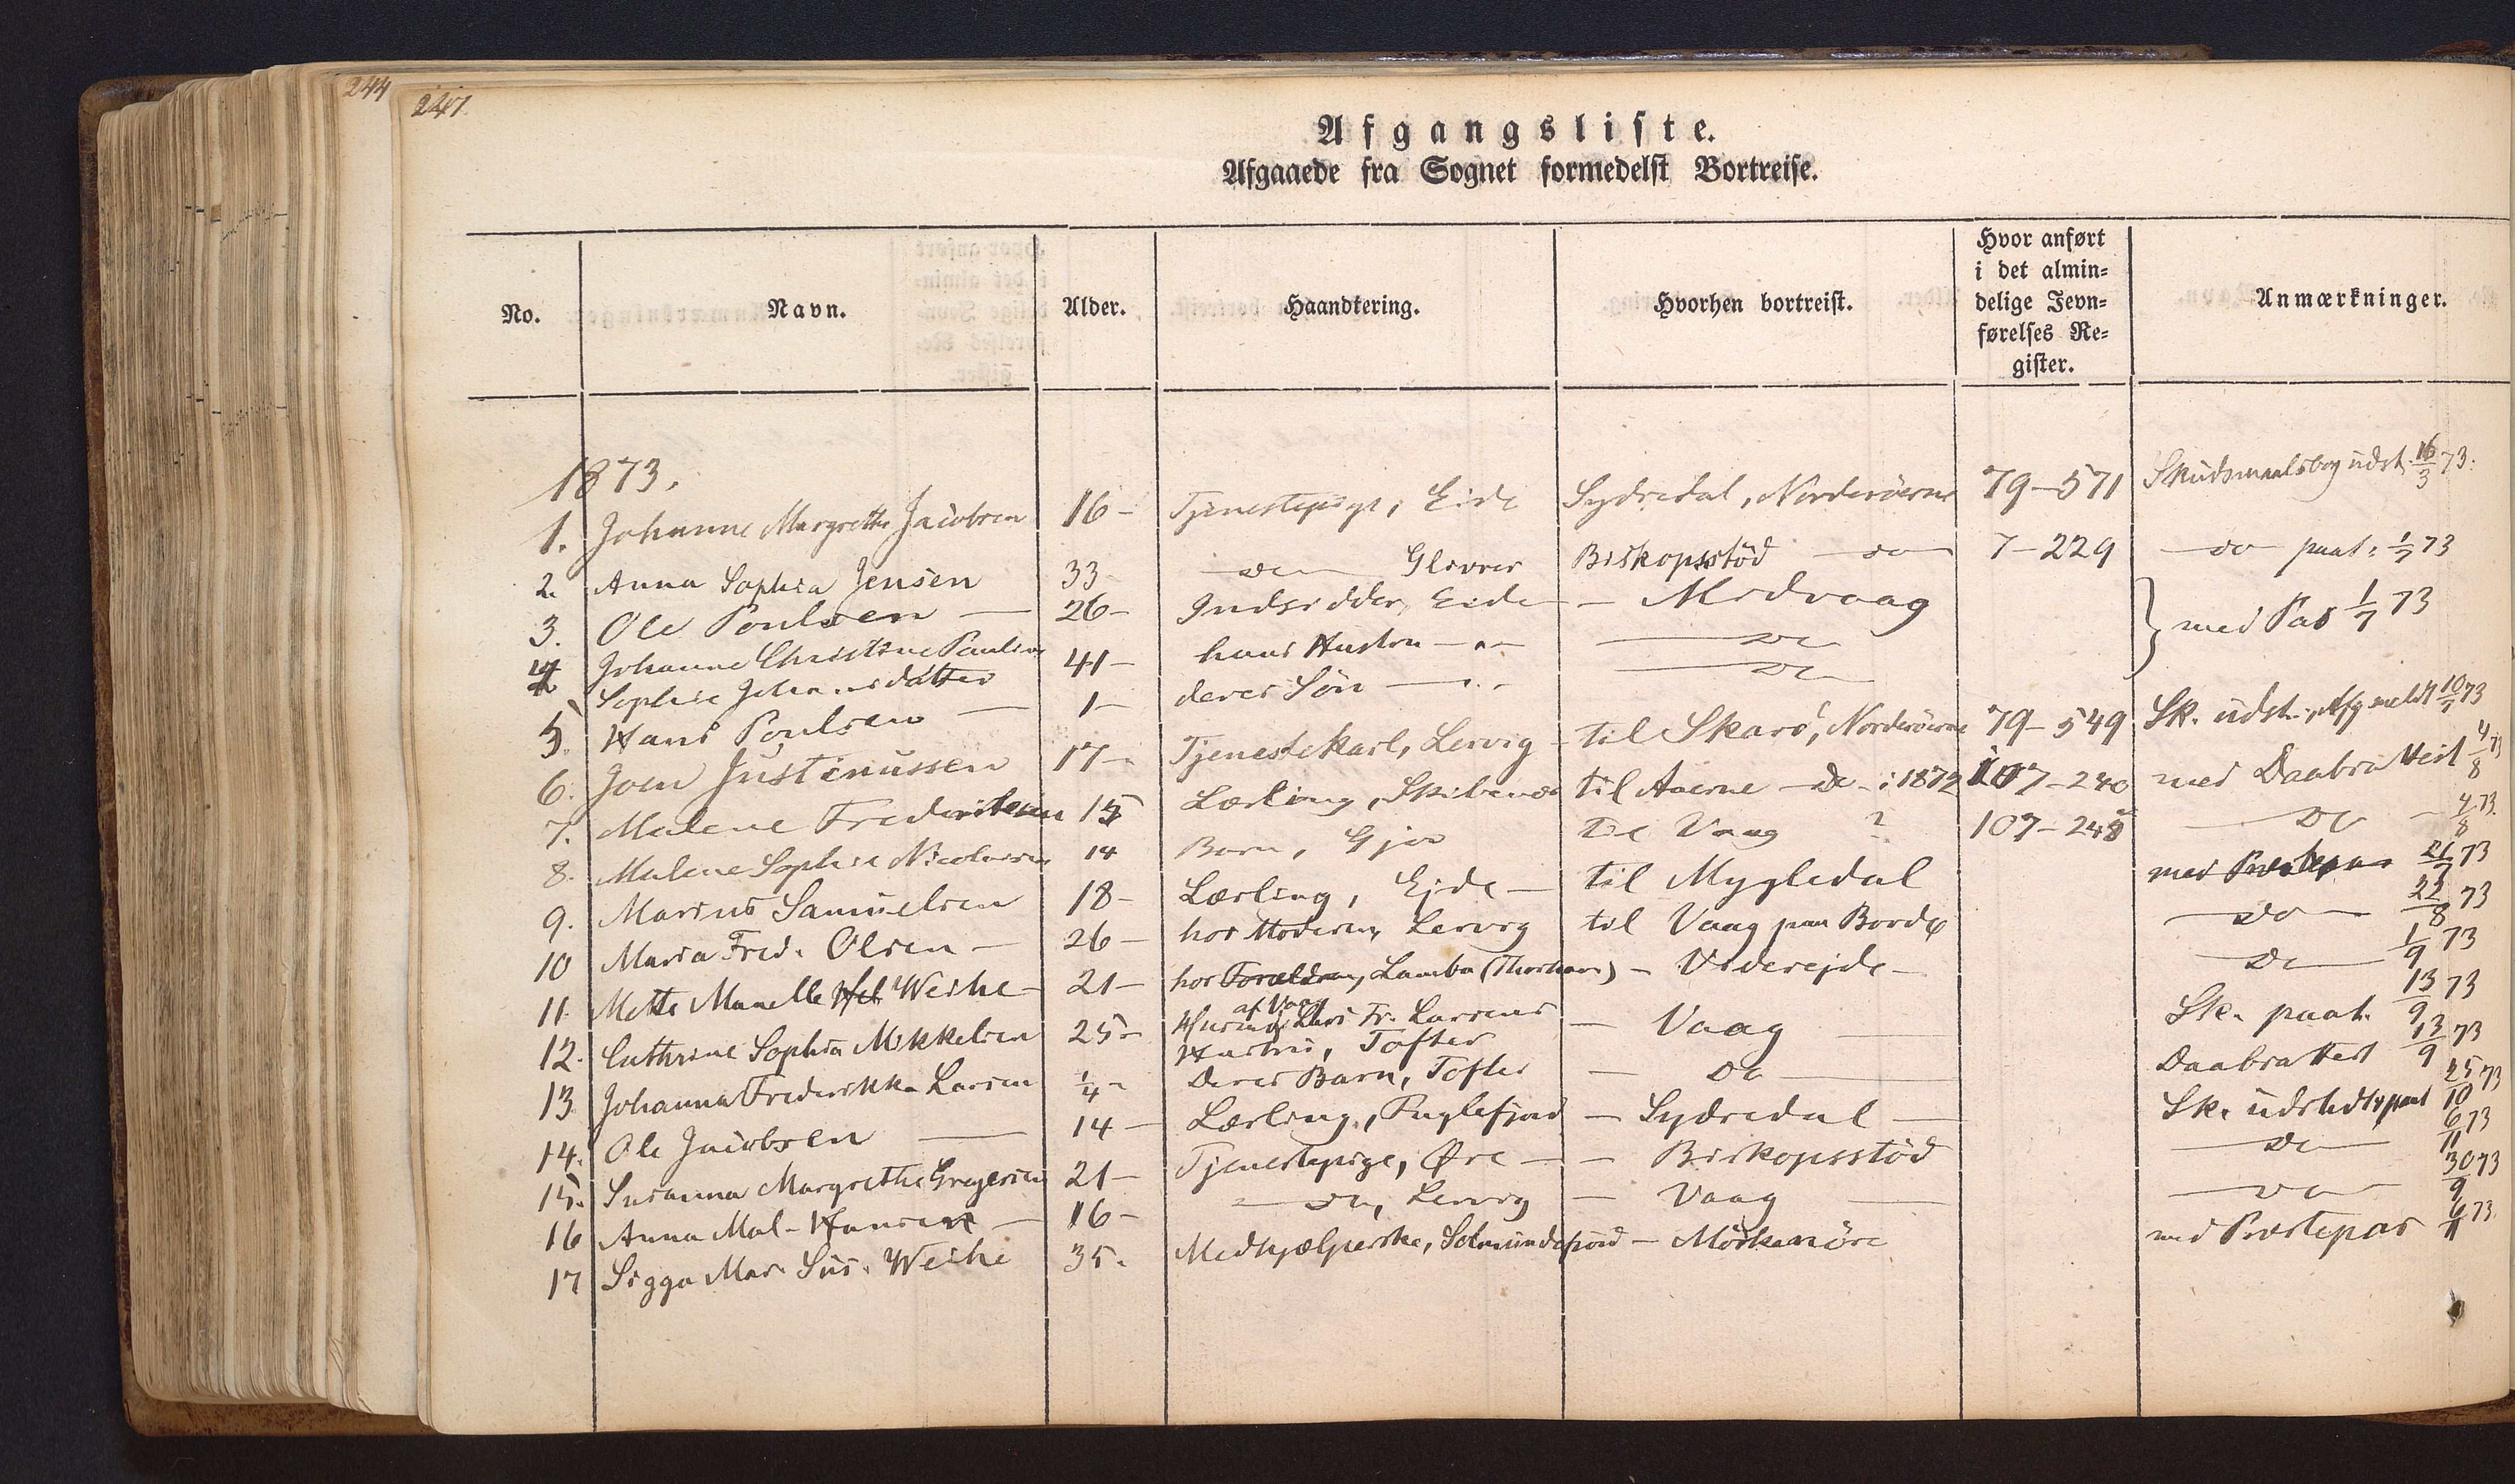 244
247.
Afgangsliste.
Afgaaede fra Sognet formedelst Bortreise.
No. Navn. Alder. Haandtering. Hvorhen bortreist. Hvor anført i det almin= delige Jevn= førelses Re= gister. Anmærkninger.
1873.
1. Johanne Margrethe Jacobsen 16 – Tjenestepige, Eide Sydredal, Norderöerne 79–571 Skudsmaalsbog udst. 16/3 73.
2. Anna Sophia Jensen 33 – do Glivrer Biskopsstöd – do – 7–229 – do – paat. 1/7 73
3. Ole Poulsen – 26 – Indsidder, Eide – Midvaag } med Pas 1/7 73
4 Johanne Christine Pauline 41 – hans Hustru – " – – do –
Sophie Johansdatter
5. Hans Poulsen – 1 – deres Sön – " – – do –
6. Joen Justinussen 17 – Tjenestekarl, Lervig – til Skarö, Norderöerne 79–549 Sk. udst., Afg. meldt 10/7 73
7. Malene Frederiksen 15 Lærling, Skibenæs til Aaerne – Do – i 1872 107–240 med Daabsattest 4/8 73
8. Malene Sophie Nicolaisen 14 Barn, Gjov til Vaag ? 107–248 – Do – 4/8 73.
9. Marius Samuelsen 18 – Lærling, Ejde – til Mygledal med Præstepas 21/7 73
10 Maria Fred. Olsen – 26 – hos Moderen, Lervig til Vaag paa Bordø – Do – 23/8 73
11. Mette Manelle Weihe – 21 – hos Forældrene, Lamba (Thorshavn) – Viderejde – – Do – 1/9 73
12. Cathrine Sophia Mikkelsen 25 – af Vaag Lars Fr. Larsens Hustru, Tofter – Vaag – Sk. paat. 13/9 73
13 Johanna Frederikke Larsen 1/4 – Deres Barn, Tofter – Do – Daabsattest 13/9 73
14. Ole Jacobsen – 14 – Lærling, Fuglefjord – Sydredal – Sk. udstedt & paat 25/10 73
15. Susanna Margrethe Gregersen 21 – Tjenestepige, Øre – – Biskopsstöd – Do – 6/11 73
16 Anna Mal. Hansen – 16 – – do, Lervig – Vaag – – Do – 30/9 73
17 Sigga Mar. Sus. Weihe 35. Medhjælperske, Solmundefjord – Mörkenöre med Præstepas 6/11 73.